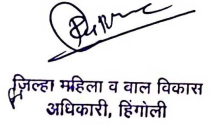 जिल्हा महिला व वाल विकास
अधिकारी, हिंगोली